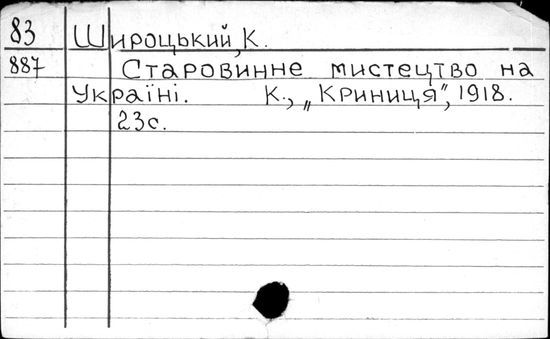 83 Широцький, К.
887 Старовинне мистецтво на
Україні. К., „Криниця", 1918.
23с.